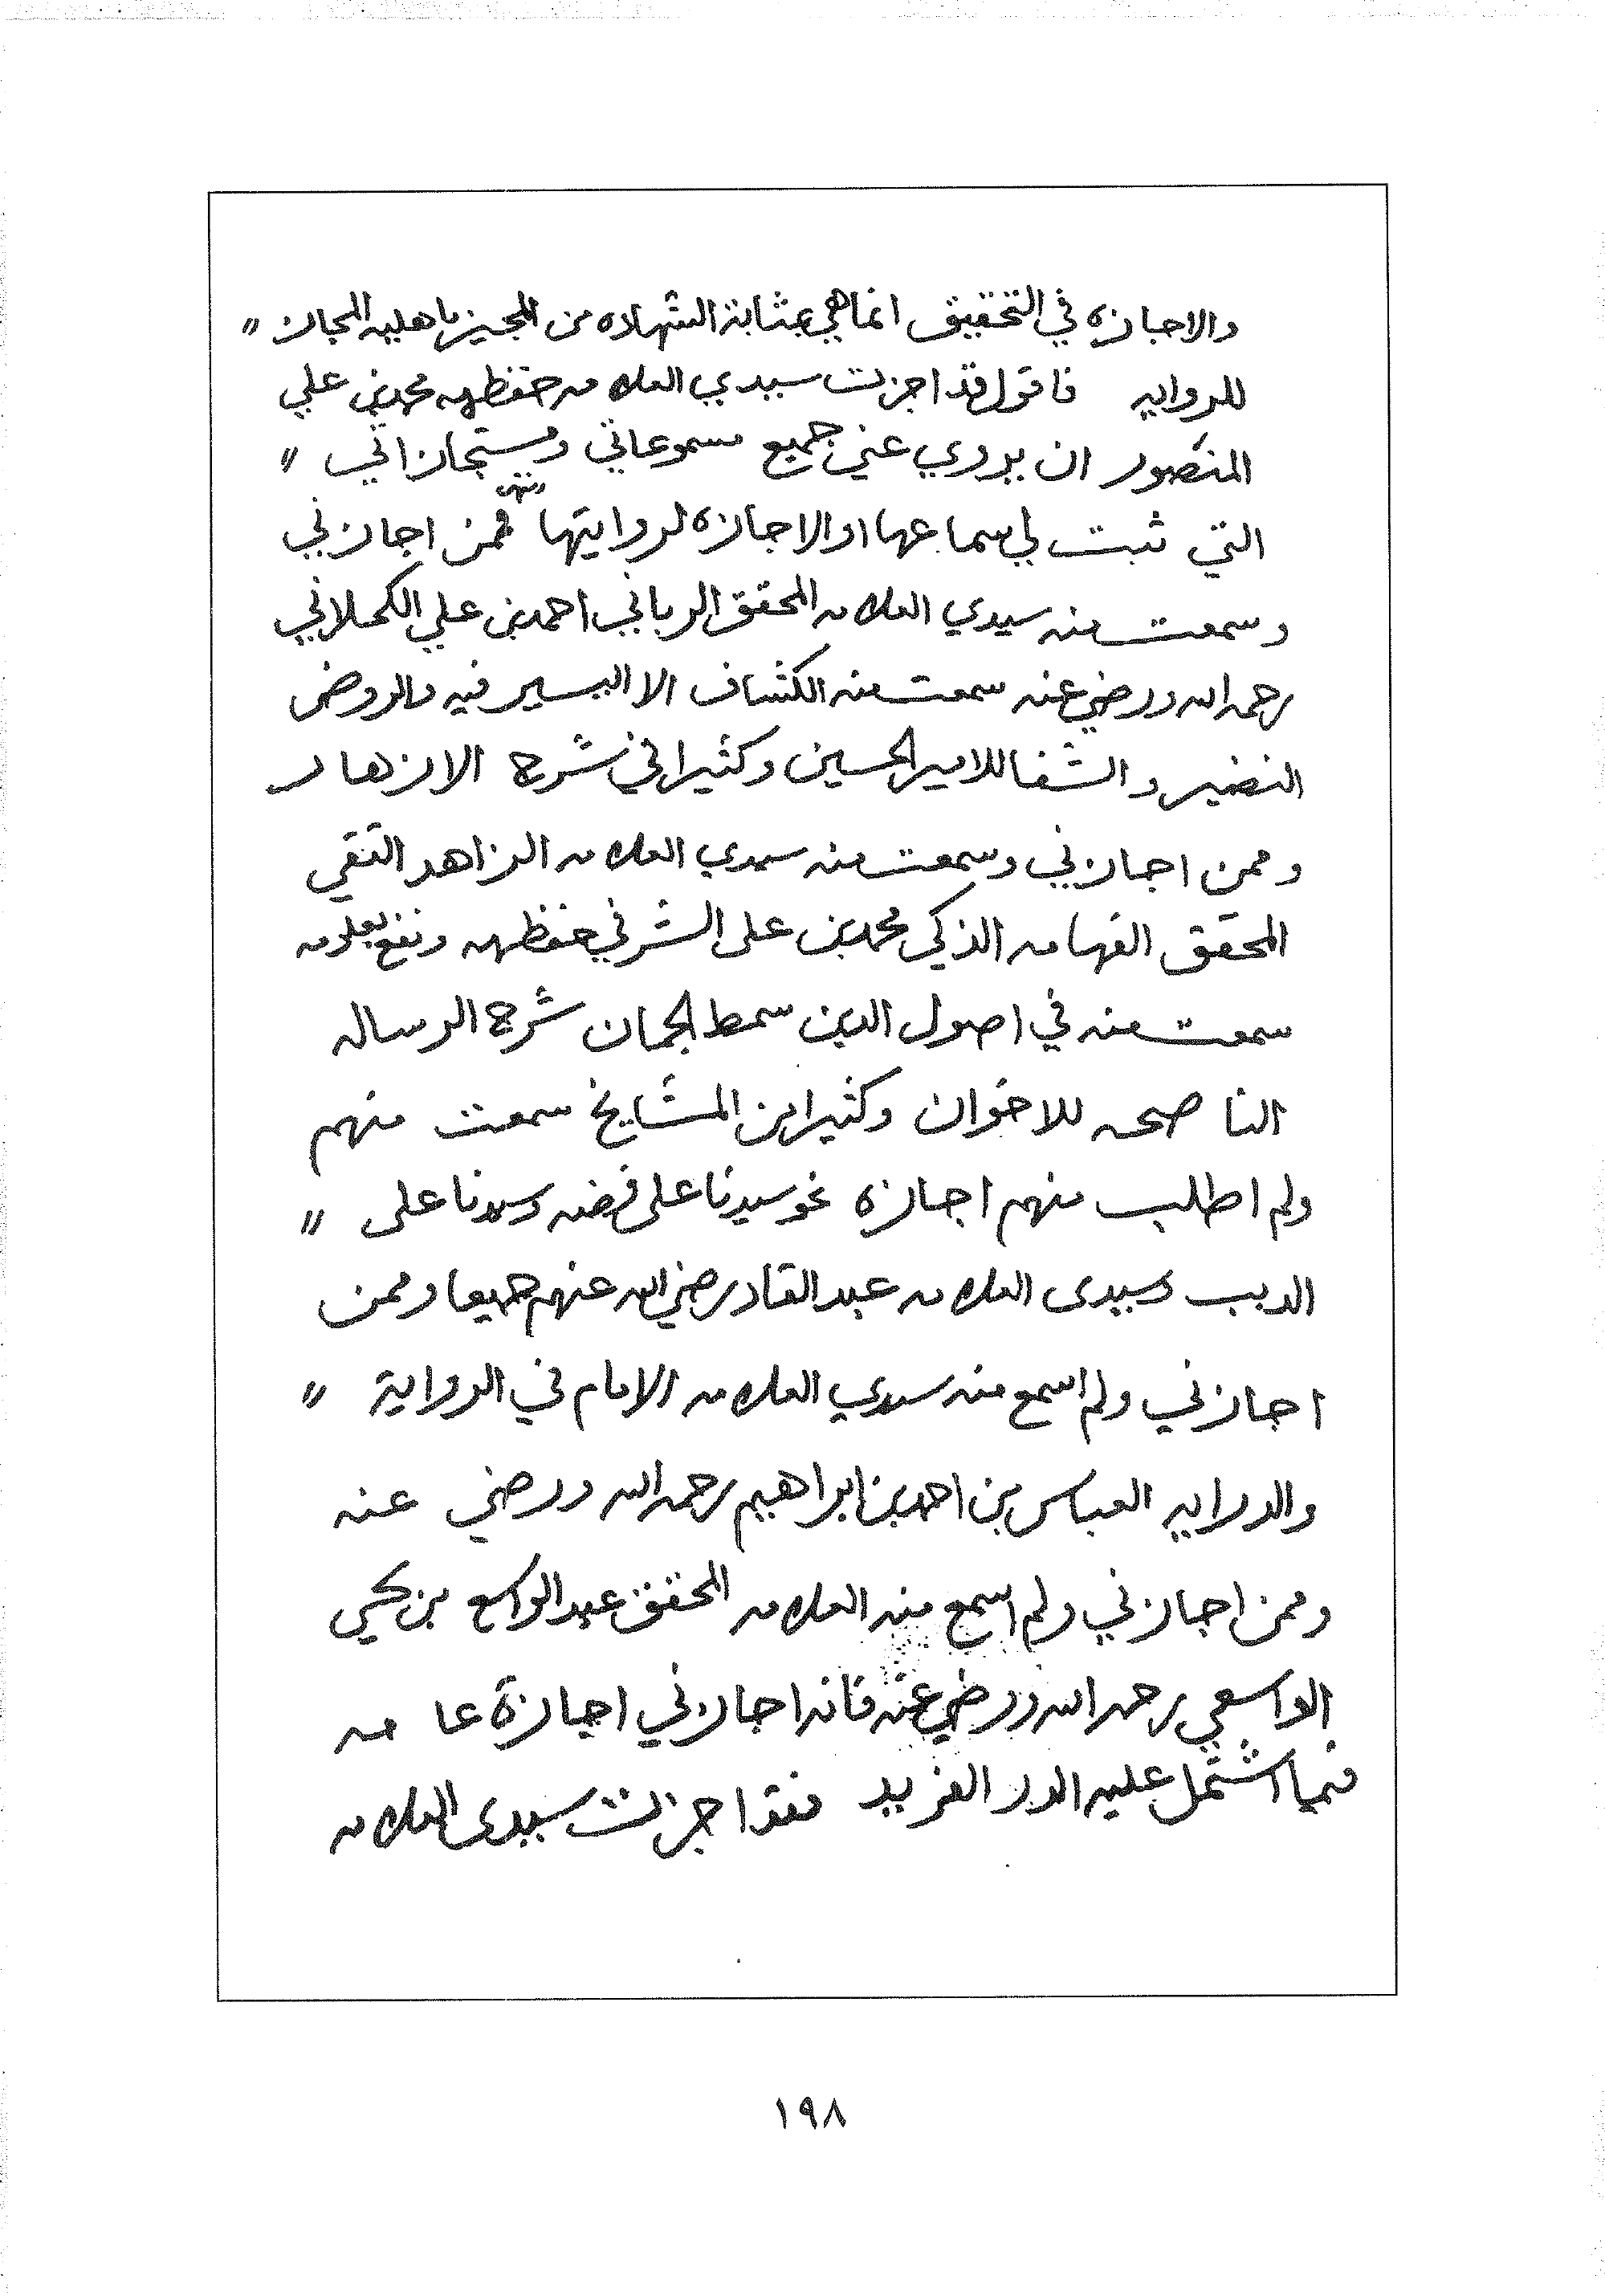 والاجازه في التحقيق انما هي بمثابة الشهاده من المجيز باهليه المجاز "
للروايه فاقول قد اجزت سيدي العلامه حفظه الله محمد بن علي
المنصور ان يروي عني جميع مسموعاتي ومستجازاتي "
التي ثبت لي سماعها او الاجازه لروايتها فممن اجازني
وسمعت منه سيدي العلامه المحقق الرباني احمد بن علي الكحلاني
رحمه الله ورضي عنه سمعت منه الكشاف الا اليسير فيه والروض
النضير والشفا للامير الحسين وكثيرا في شرح الازهار
وممن اجازني وسمعت منه سيدي العلامه الزاهد التقي
المحقق الفهامه الذكي محمد بن على الشرفي حفظه الله ونفع بعلومه
سمعت منه في اصول الدين سمط الجمان شرح الرساله
الناصحه للاخوان وكثيرا من المشايخ سمعت منهم
ولم اطلب منهم اجازه نحو سيدنا على فضه وسيدنا على "
الدبب وسيدى العلامه عبد القادر رضي الله عنهم جميعا وممن
اجازني ولم اسمع منه سيدي العلامه الامام في الرواية "
والدرايه العباس بن احمد بن ابراهيم رحمه الله ورضي عنه
وممن اجازني ولم اسمع منه العلامه المحقق عبد الواسع بن يحيى
الواسعي رحمه الله ورضي عنه فانه اجازني اجازة عامه
فيما اشتمل عليه الدر الفريد فقد اجزت سيدى العلامه
١٩٨